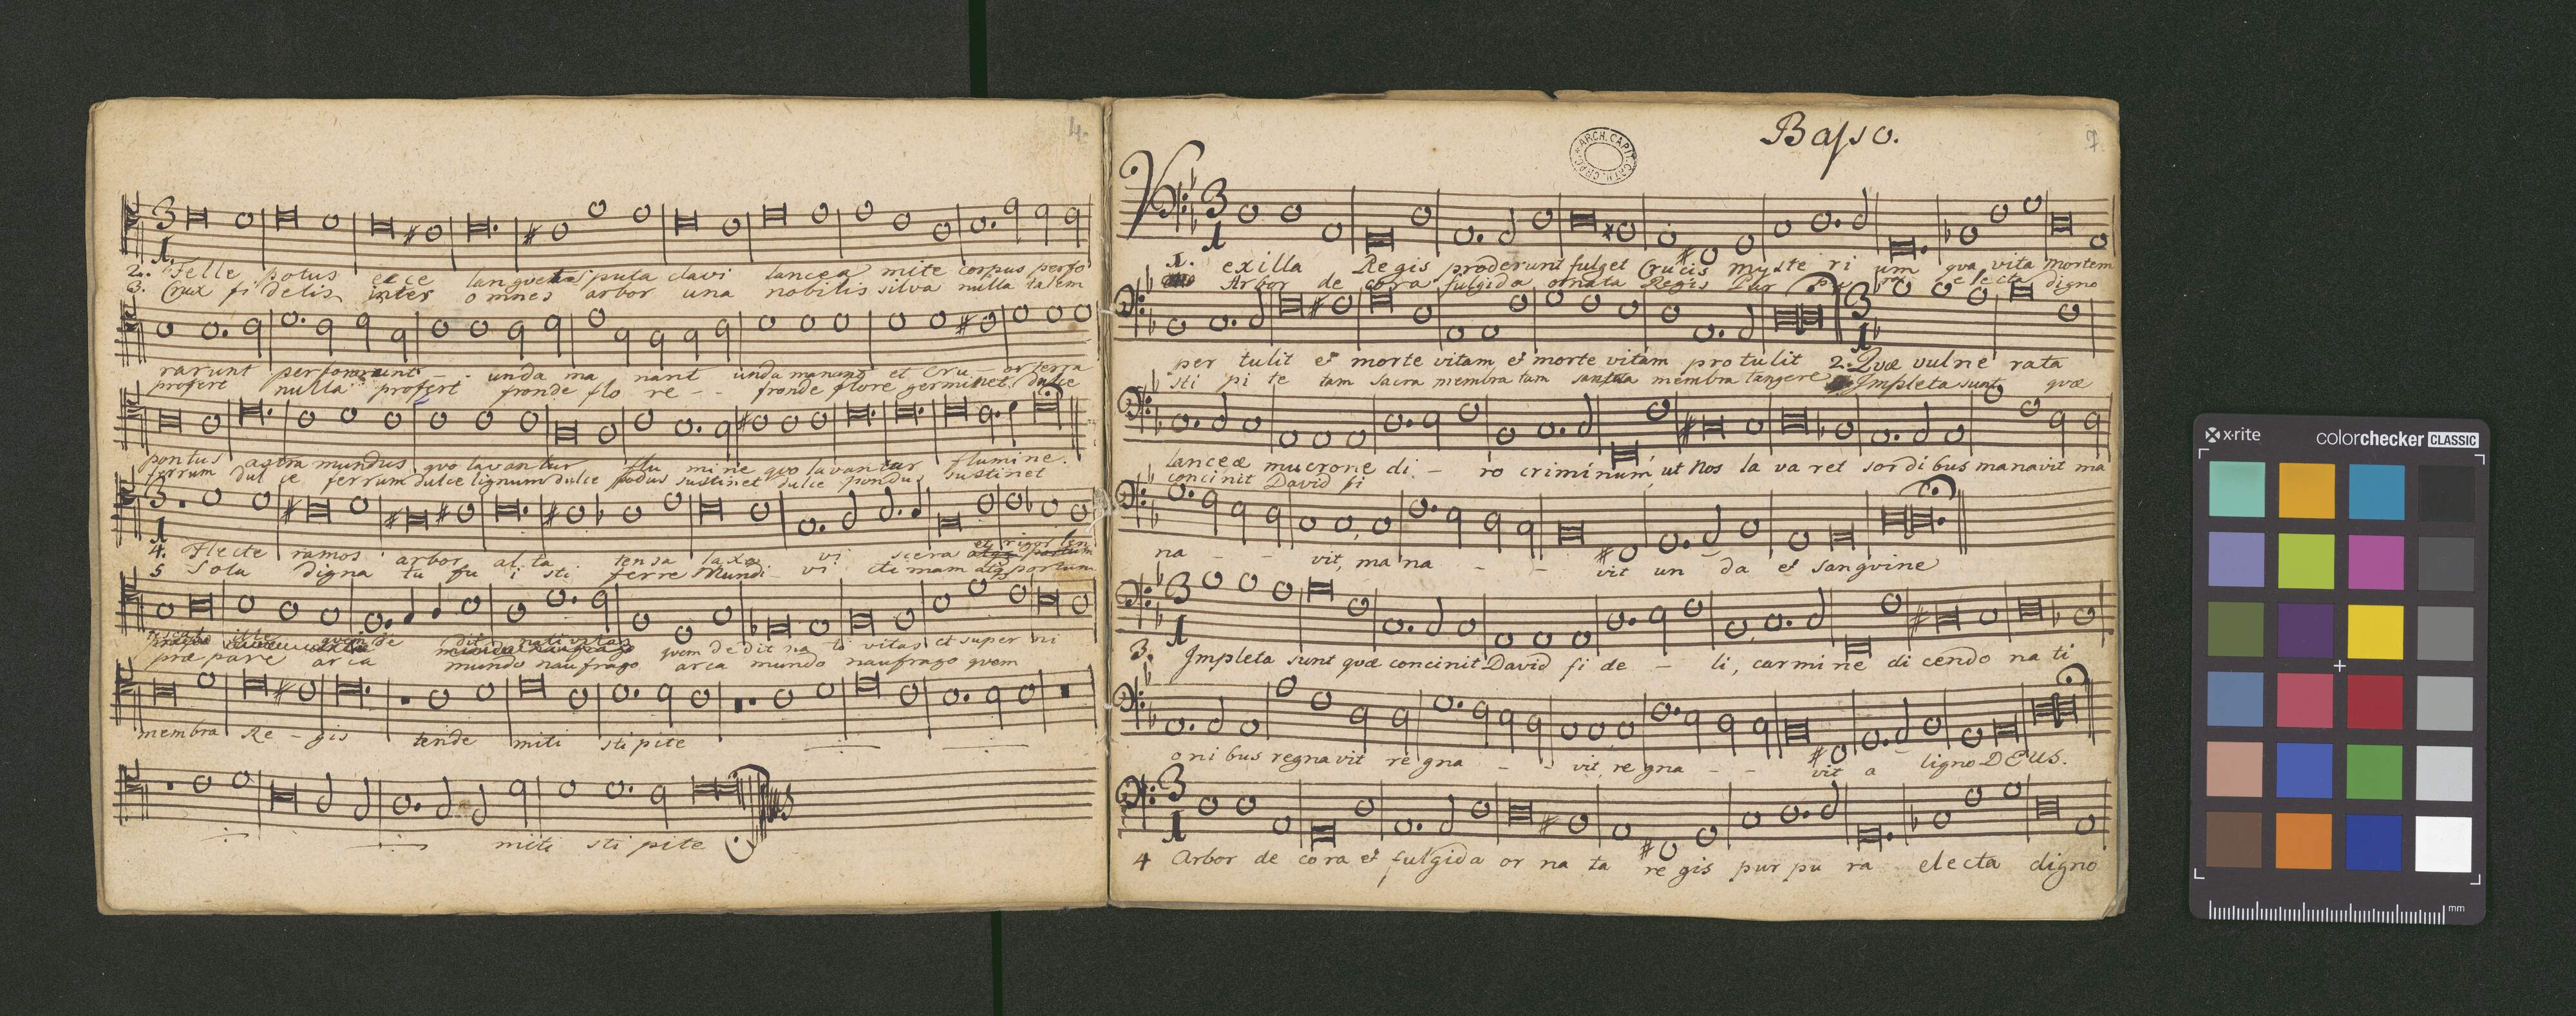 4.
2. Felle potus ecce langvet sputa clavi lancea mite corpus perfo
3. Crux fi delis inter omnes arbor una nobilis silva nulla talem
rarunt perforarunt - - unda ma nant unda manant et Cru - or terra
profert nulla profert fronde flo re - - fronde flore germinet, dulce
pontus astra mundus qvo lavantur flu mine qvo lavantur flumine.
ferrum dul ce ferrum dulce lignum dulce podus sustinet dulce pondus sustinet
4. Flecte ramos arbor al ta tensa laxa vi scera et rigor len
5 Sola digna tu fu i sti ferre Mundi vi cti mam atq portum
quem de dit nativitas quem de dit na ti vitas et super ni
præ pare arca mundo naufrago arca mundo naufrago qvem
membra Re - gis tende miti sti pite
miti sti pite
Basso.
7
ARCH. CAPIT. CATH. CRAC.
V
1. exilla Regis proderunt fulget Crucis myste ri um qva vita mortem
Arbor de cora fulgida ornata Regis Pur pu ra electa digno
per tulit et morte vitam et morte vitam pro tulit 2. Qvæ vulne rata
sti pi te tam sacra membra tam sancta membra tangere Impleta sunt qvæ
lanceæ mucrone di - ro criminum, ut Nos la va ret sordi bus manavit ma
concinit David fi
na - - vit, ma na - - vit un da et sangvine
3. Impleta sunt qvæ concinit David fi de - li, carmi ne di cendo na ti
oni bus regnavit re gna - - vit, re gna - - vit a ligno DEUS.
4 Arbor de co ra et fulgida or na ta re gis pur pu ra electa digno
x-rite colorchecker CLASSIC
mm